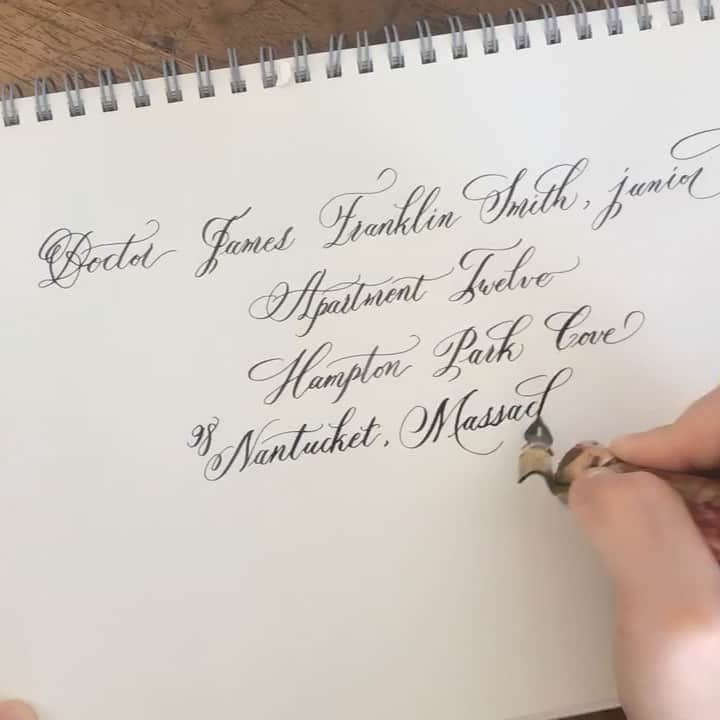 Doctor James Franklin Smith, junior
Apartment Twelve
Hampton Park Cove
98 Nantucket, Massach